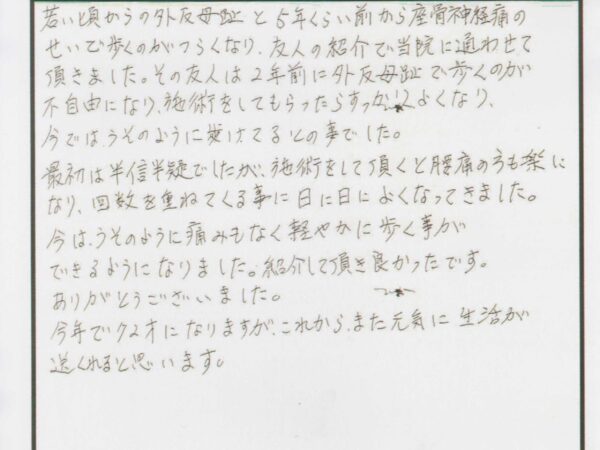 若い頃からの外反母趾と5年くらい前から座骨神経痛の
せいで歩くのがつらくなり、友人の紹介で当院に通わせて
頂きました。その友人は2年前に外反母趾で歩くのが
不自由になり、施術をしてもらったらすっかりよくなり、
今では、うそのように歩けてるとの事でした。
最初は半信半疑でしたが、施術をして頂くと腰痛の方も楽に
なり、回数を重ねてくる事に日に日によくなってきました。
今は、うそのように痛みもなく軽やかに歩く事が
できるようになりました。紹介して頂き良かったです。
ありがとうございました。
今年で72才になりますが、これから、また元気に生活が
送くれると思います。